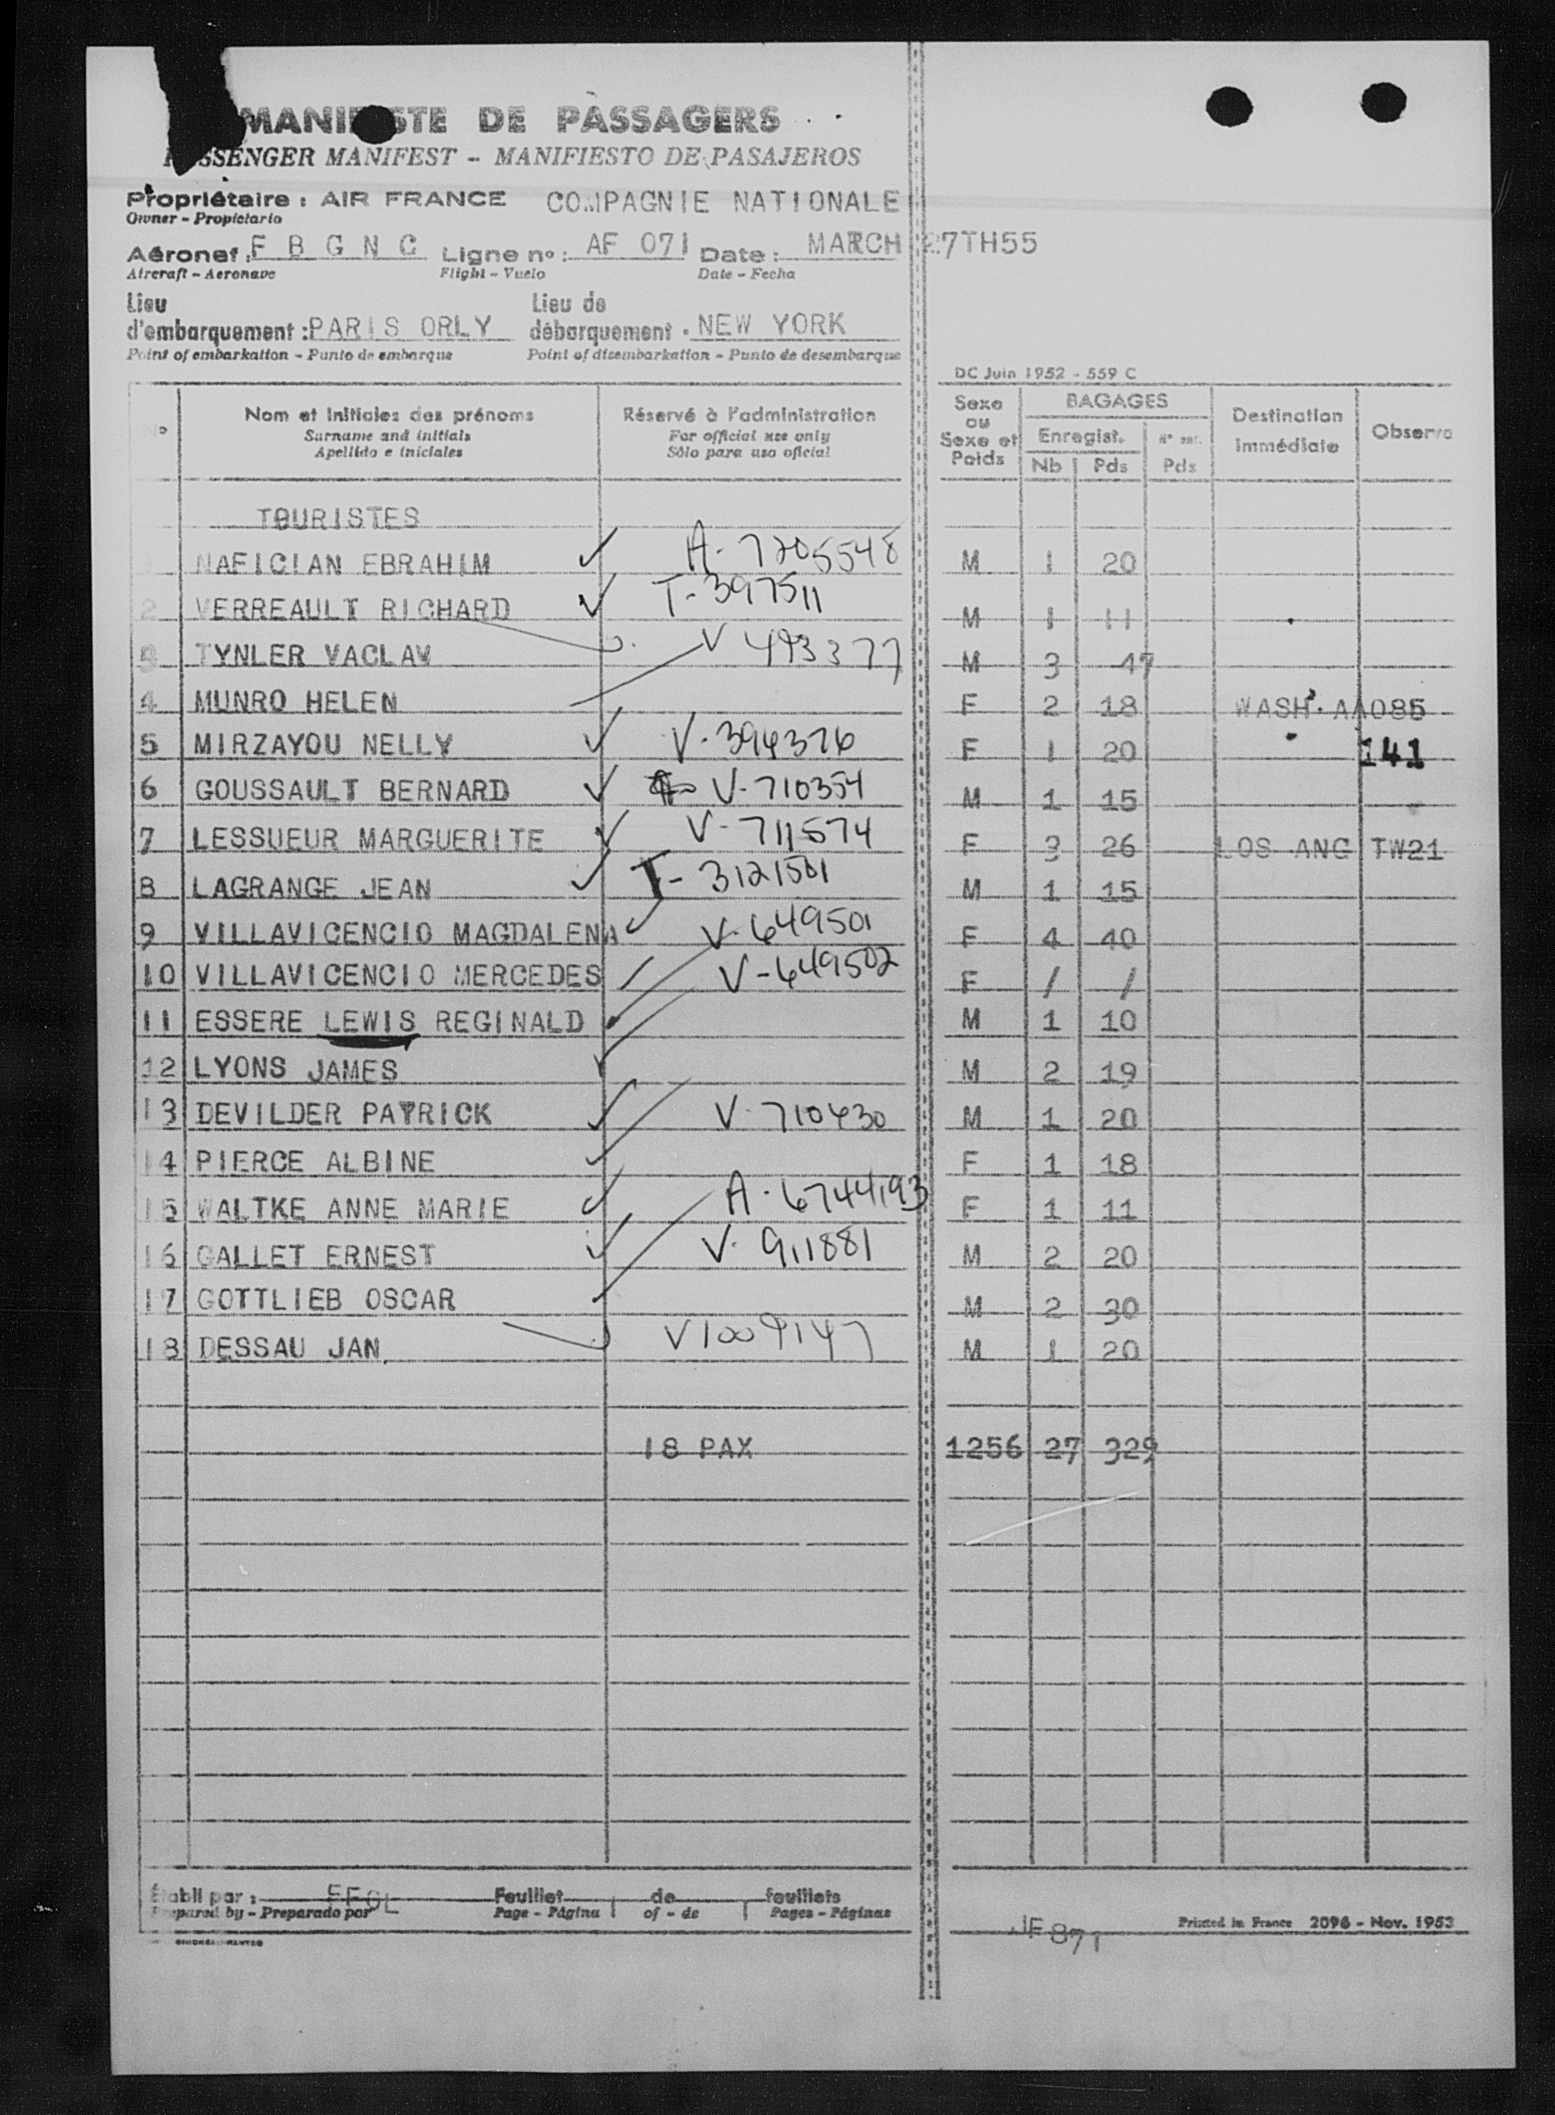 MANIFESTE DE PASSAGERS
PASSENGER MANIFEST - MANIFIESTO DE PASAJEROS
Propriétaire : AIR FRANCE COMPAGNIE NATIONALE
Owner - Propietario
Aéronef : F B G N C Ligne no : AF 071 Date : MARCH 27TH55
Aircraft - Aeronave Flight - Vuelo Date - Fecha
Lieu Lieu de
d'embarquement : PARIS ORLY débarquement . NEW YORK
Point of embarkation - Punto de embarque Point of disembarkation - Punto de desembarque
DC Juin 1952 - 559 C
No Nom et initiales des prénoms Réservé à l'administration Sexe ou Sexe et Poids BAGAGES Destination immédiate Observa
Surname and initials For official use only Enregist.
Apellido e iniciales Sólo para uso oficial Nb Pds Pds
TOURISTES
NAFICIAN EBRAHIM A-7205548 M 1 20
2 VERREAULT RICHARD T-397511 M 1 11
3 TYNLER VACLAV V 493377 M 3 47
4 MUNRO HELEN F 2 18 WASH. AA085
5 MIRZAYOU NELLY V-394376 F 1 20 141
6 GOUSSAULT BERNARD V-710354 M 1 15
7 LESSUEUR MARGUERITE V-711574 F 3 26 LOS ANG TW21
8 LAGRANGE JEAN T-3121501 M 1 15
9 VILLAVICENCIO MAGDALENA V-649501 F 4 40
10 VILLAVICENCIO MERCEDES V-649502 F / /
11 ESSERE LEWIS REGINALD M 1 10
12 LYONS JAMES M 2 19
13 DEVILDER PATRICK V-710430 M 1 20
14 PIERCE ALBINE F 1 18
15 WALTKE ANNE MARIE A-6744193 F 1 11
16 GALLET ERNEST V-911881 M 2 20
17 GOTTLIEB OSCAR M 2 30
18 DESSAU JAN V1009147 M 1 20
18 PAX 1256 27 329
Établi par : Feuillet 1 de 1 feuillets
Prepared by - Preparado por Page - Página of - de Pages - Páginas
Printed in France 2096 - Nov. 1953
JF 871